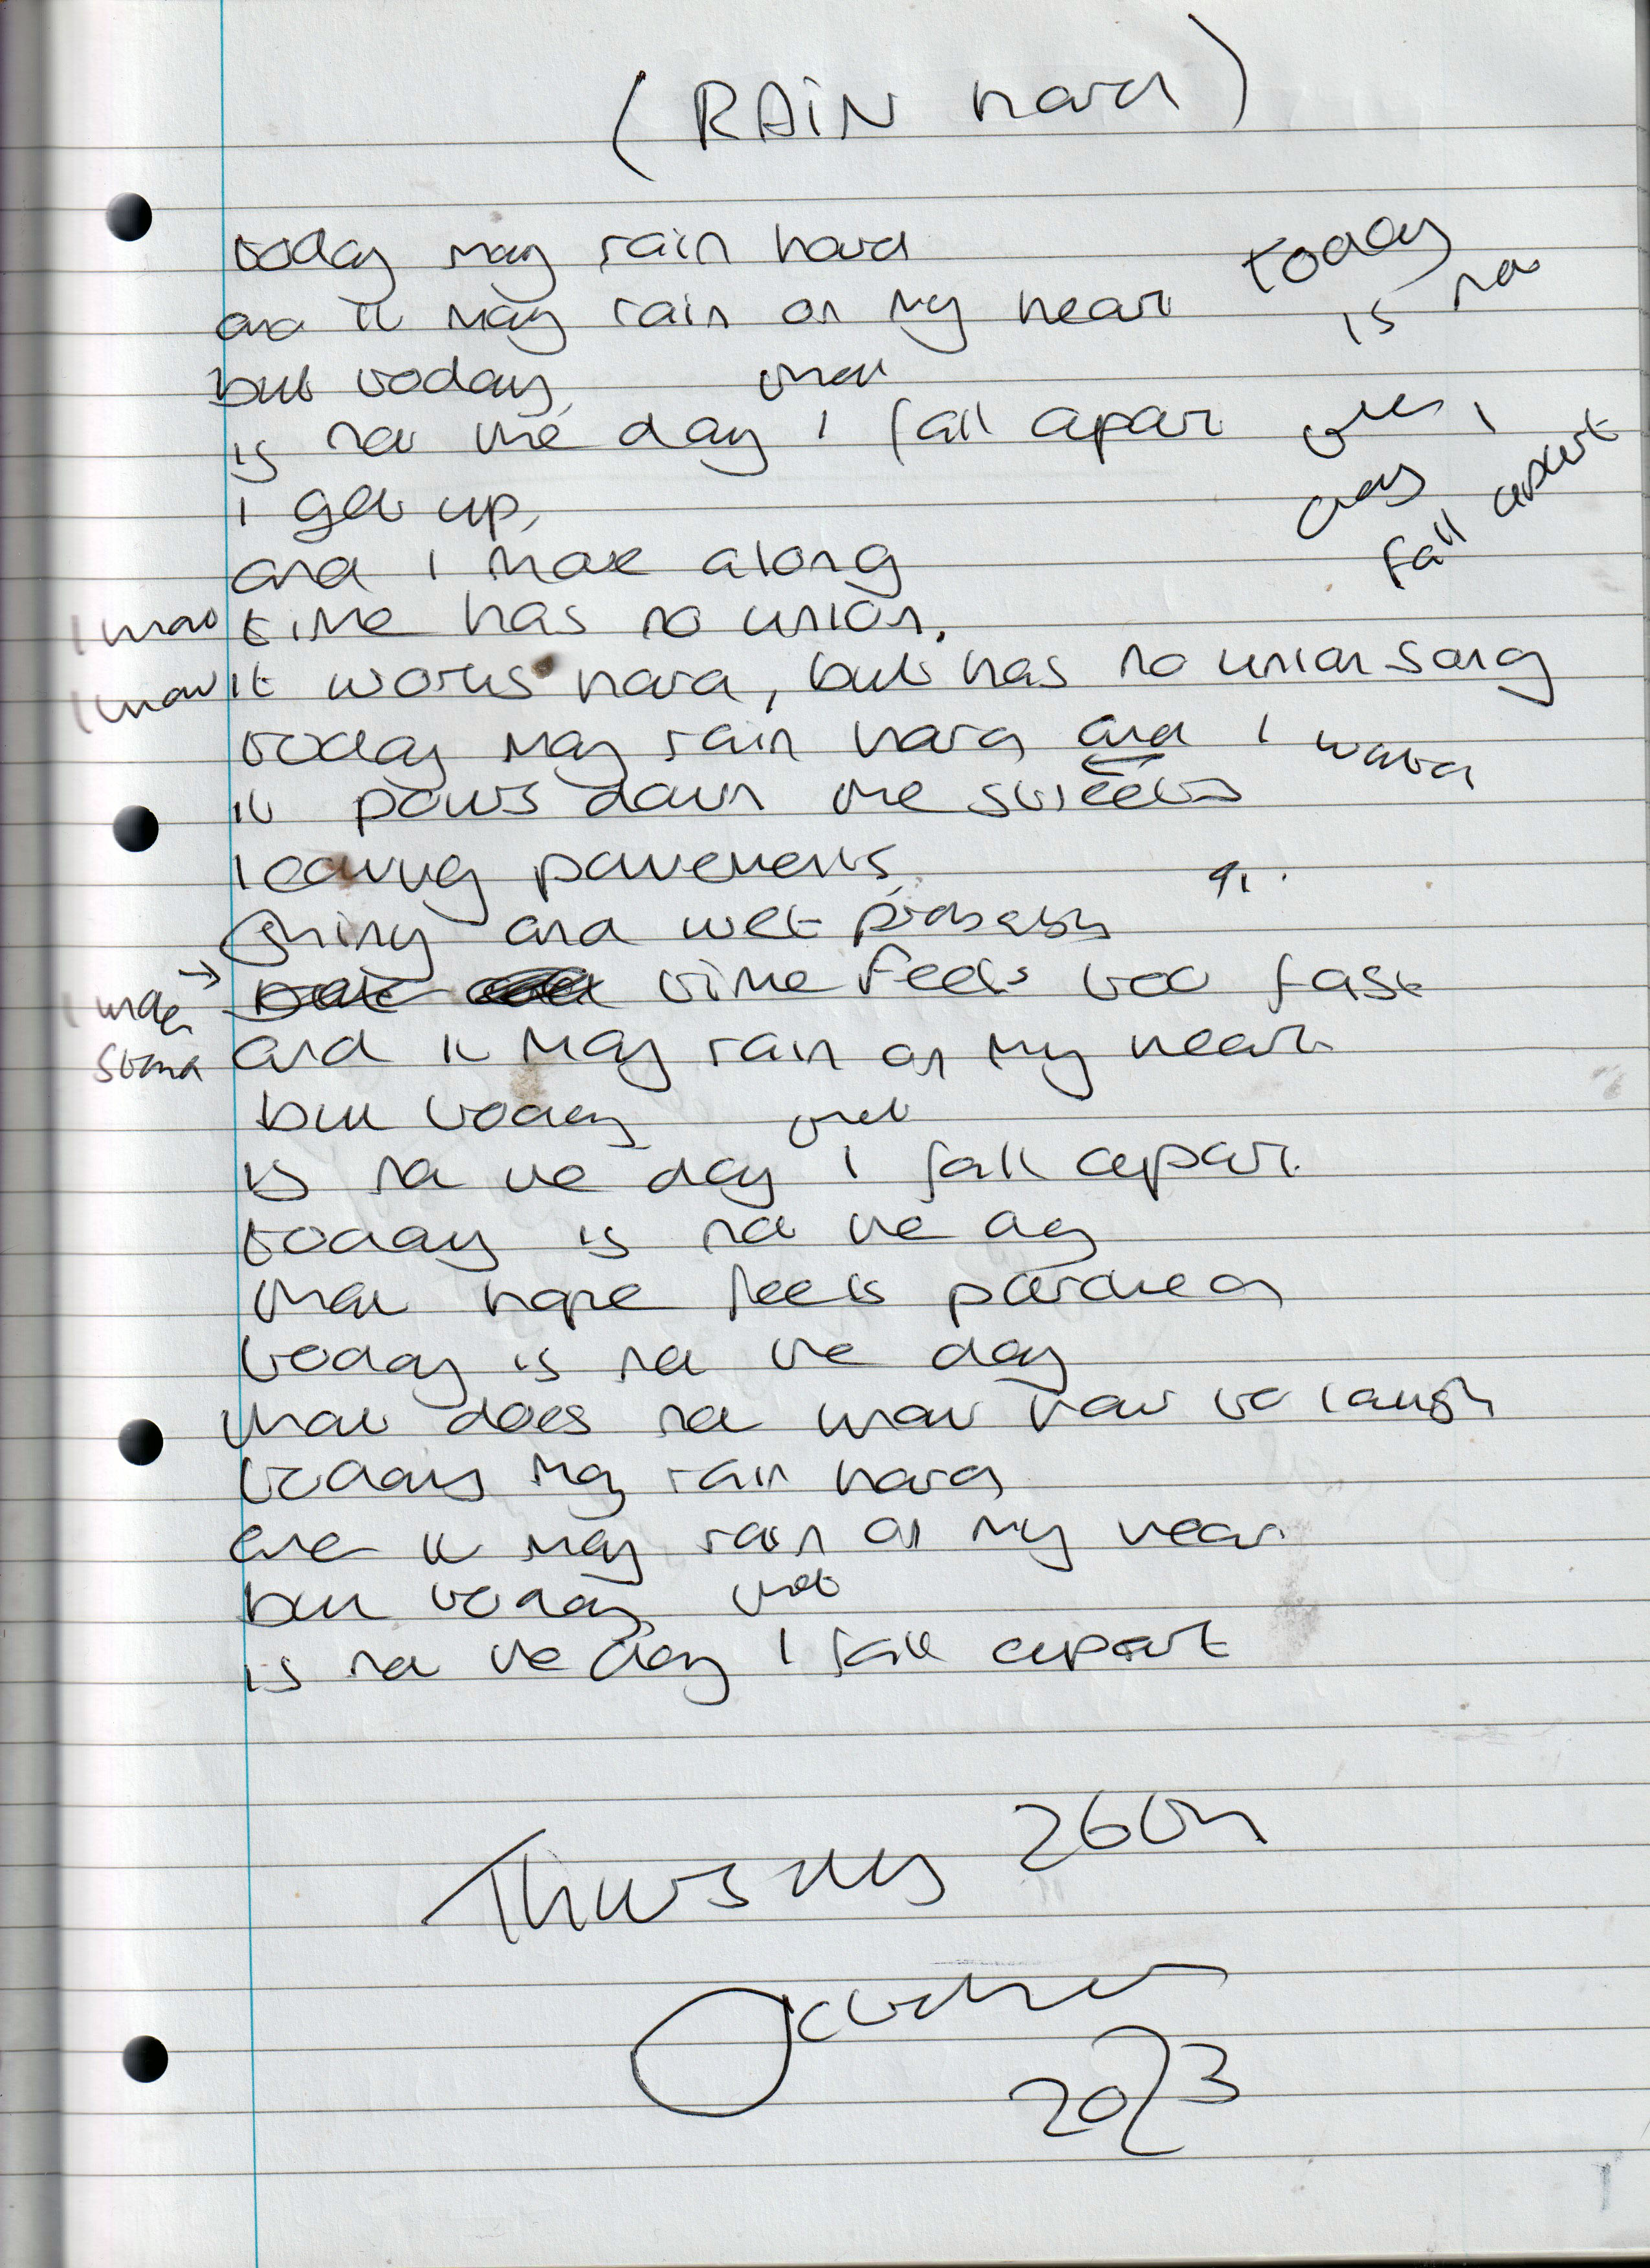 (RAIN hard)
today may rain hard
and it may rain on my heart
but today, that
is not the day I fall apart
today
is not
the
day I
fall apart
I get up,
and I move along
I know time has no union.
I know it works hard, but has no union song
today may rain hard and I watch
it pours down the streets
leaving pavements
shiny and wet
time feels too fast
I under
stand
and it may rain on my heart
but today that
is not the day I fall apart.
today is not the day
that hope feels parched
today is not the day
that does not know how to laugh
today may rain hard
and it may rain on my heart
but today that
is not the day I fall apart
Thursday 26th
October
2023